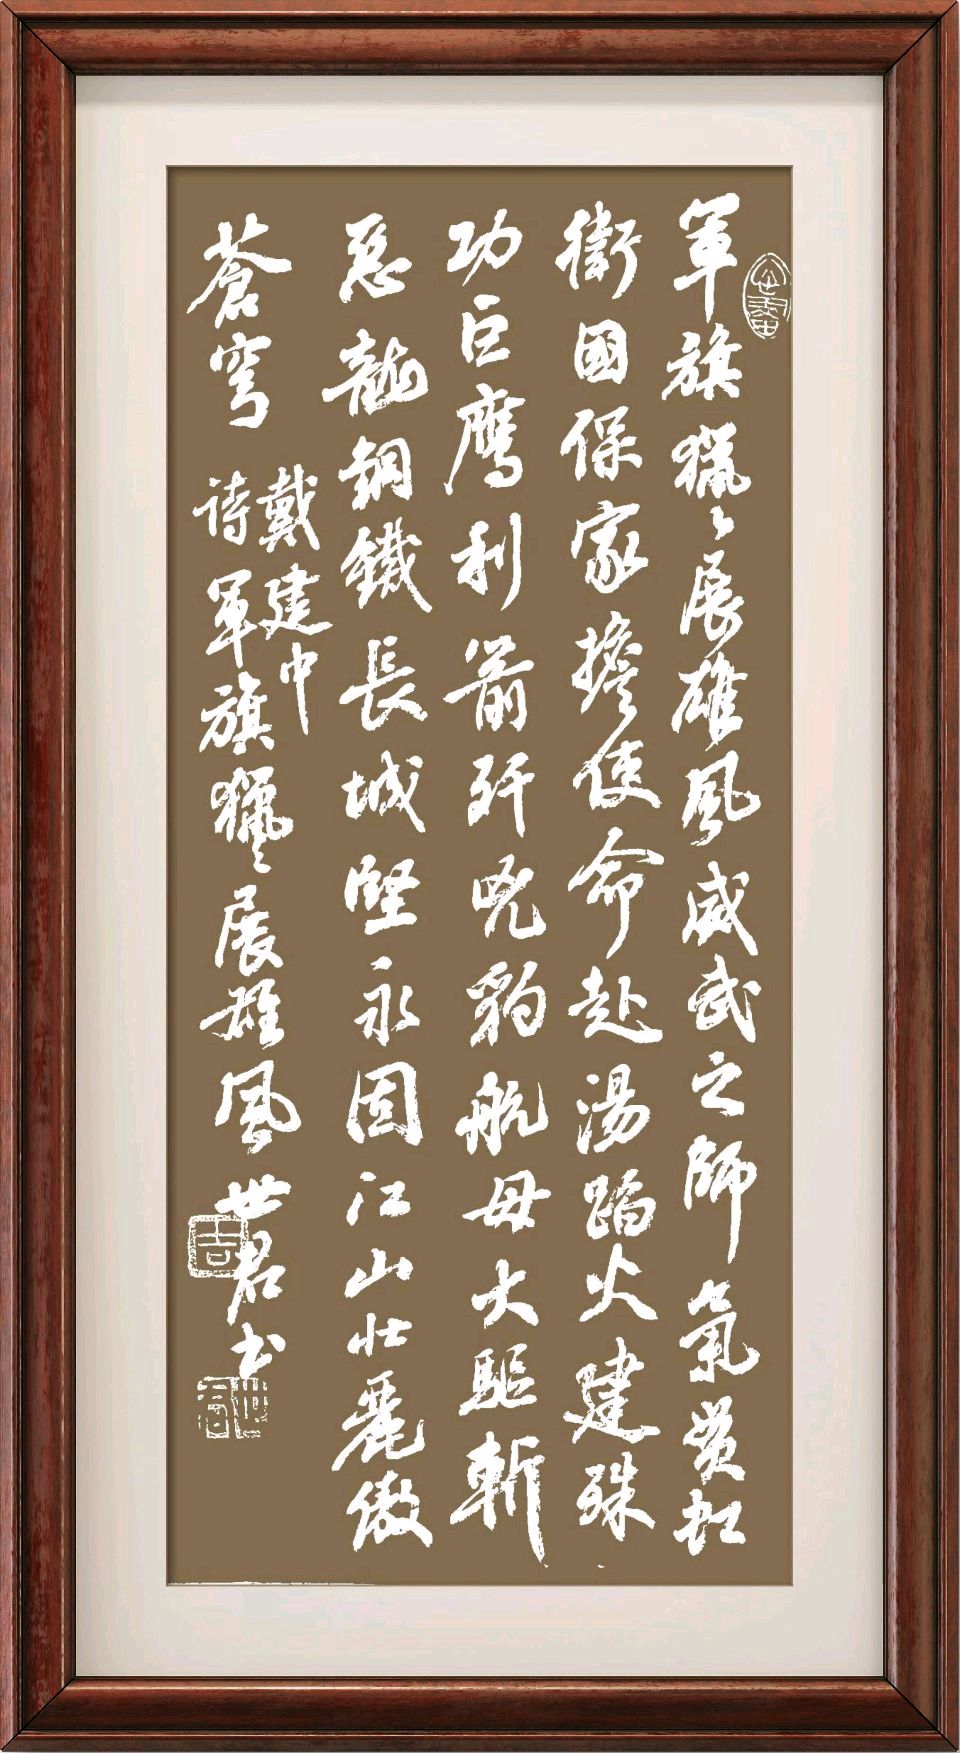 軍旗獵々展雄風威武之師氣貫虹
衛國保家擔使命赴湯蹈火建殊
功巨鹰利箭歼兇豹航母大驅斬
惡龍鋼鐵長城堅永固江山壯麗傲
蒼穹
戴建中
诗軍旗獵々展雄風世君书